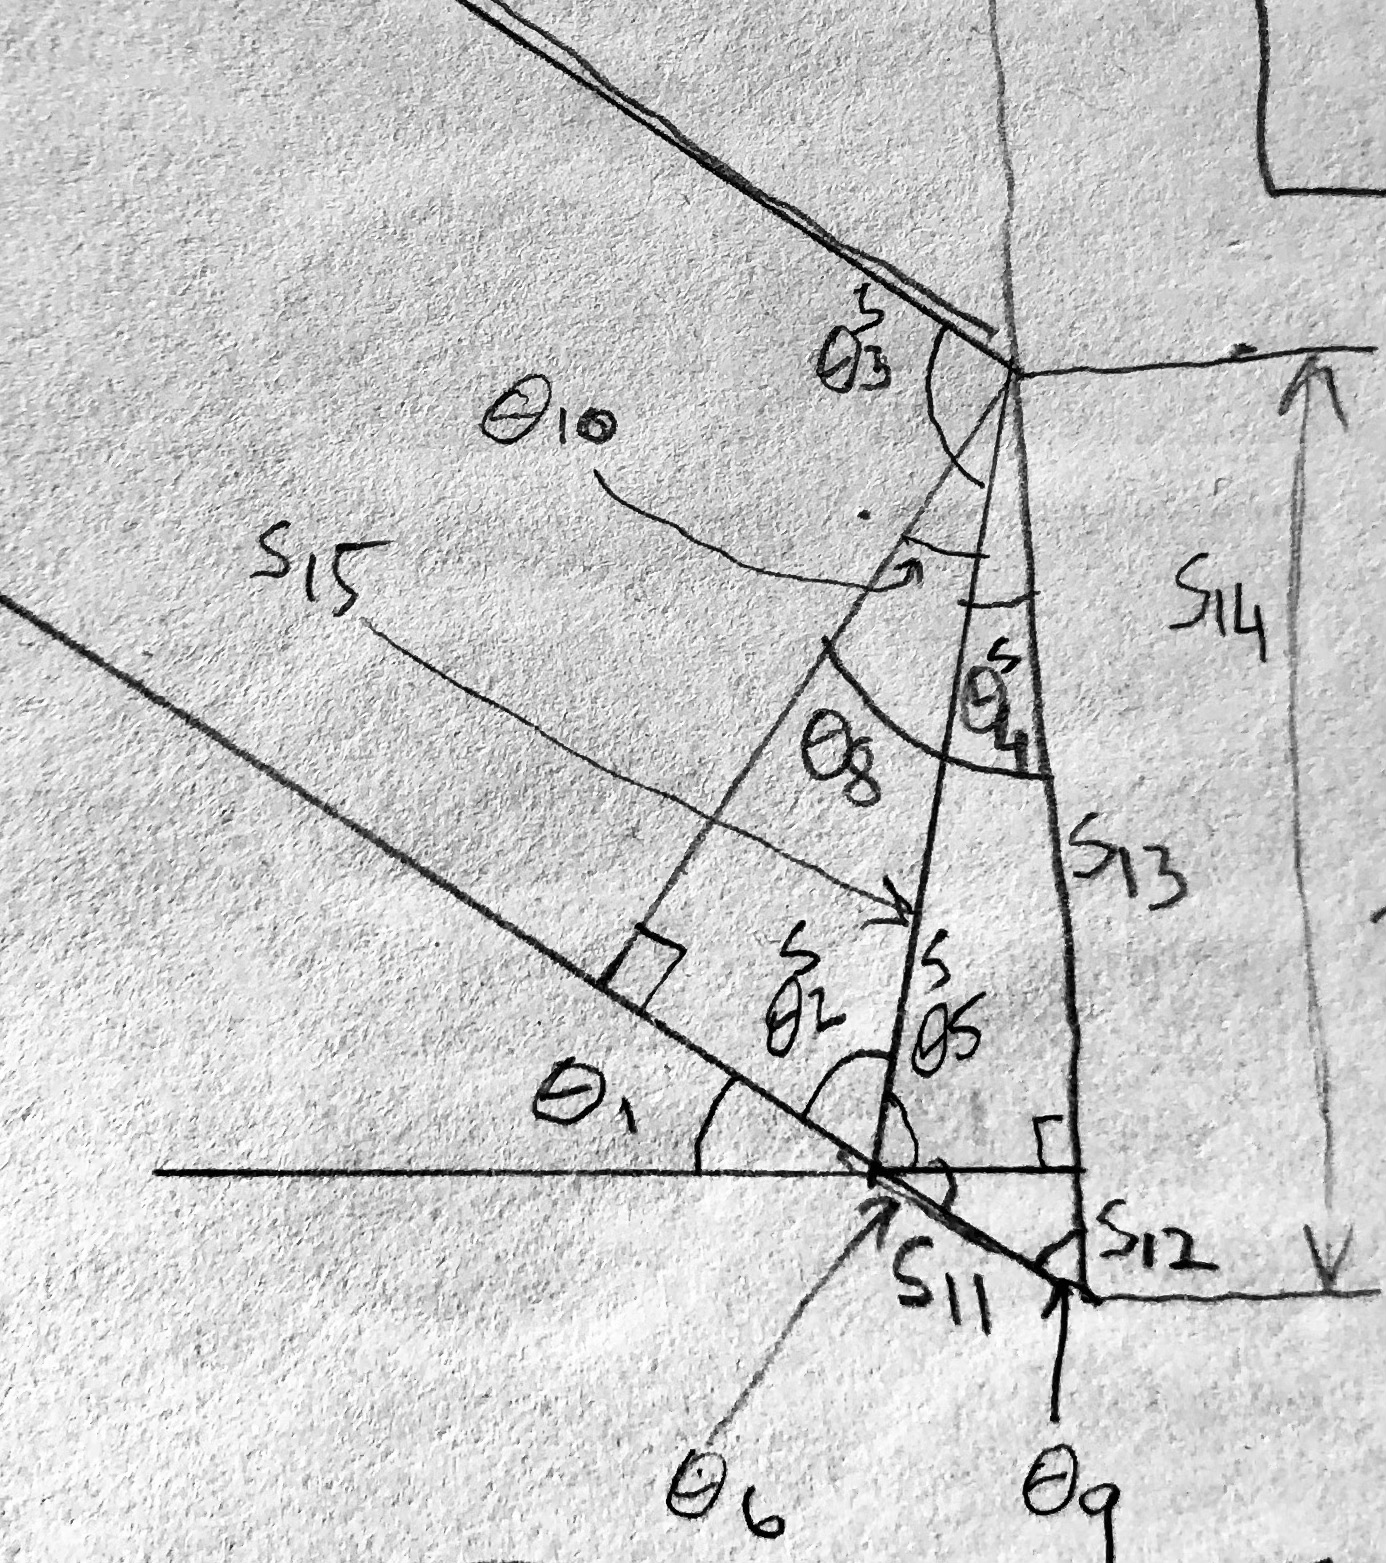 θ3^S
θ10
S15
S14
θ4^S
θ8
S13
θ2^S
θ5^S
θ1
S12
S11
θ6
θ9